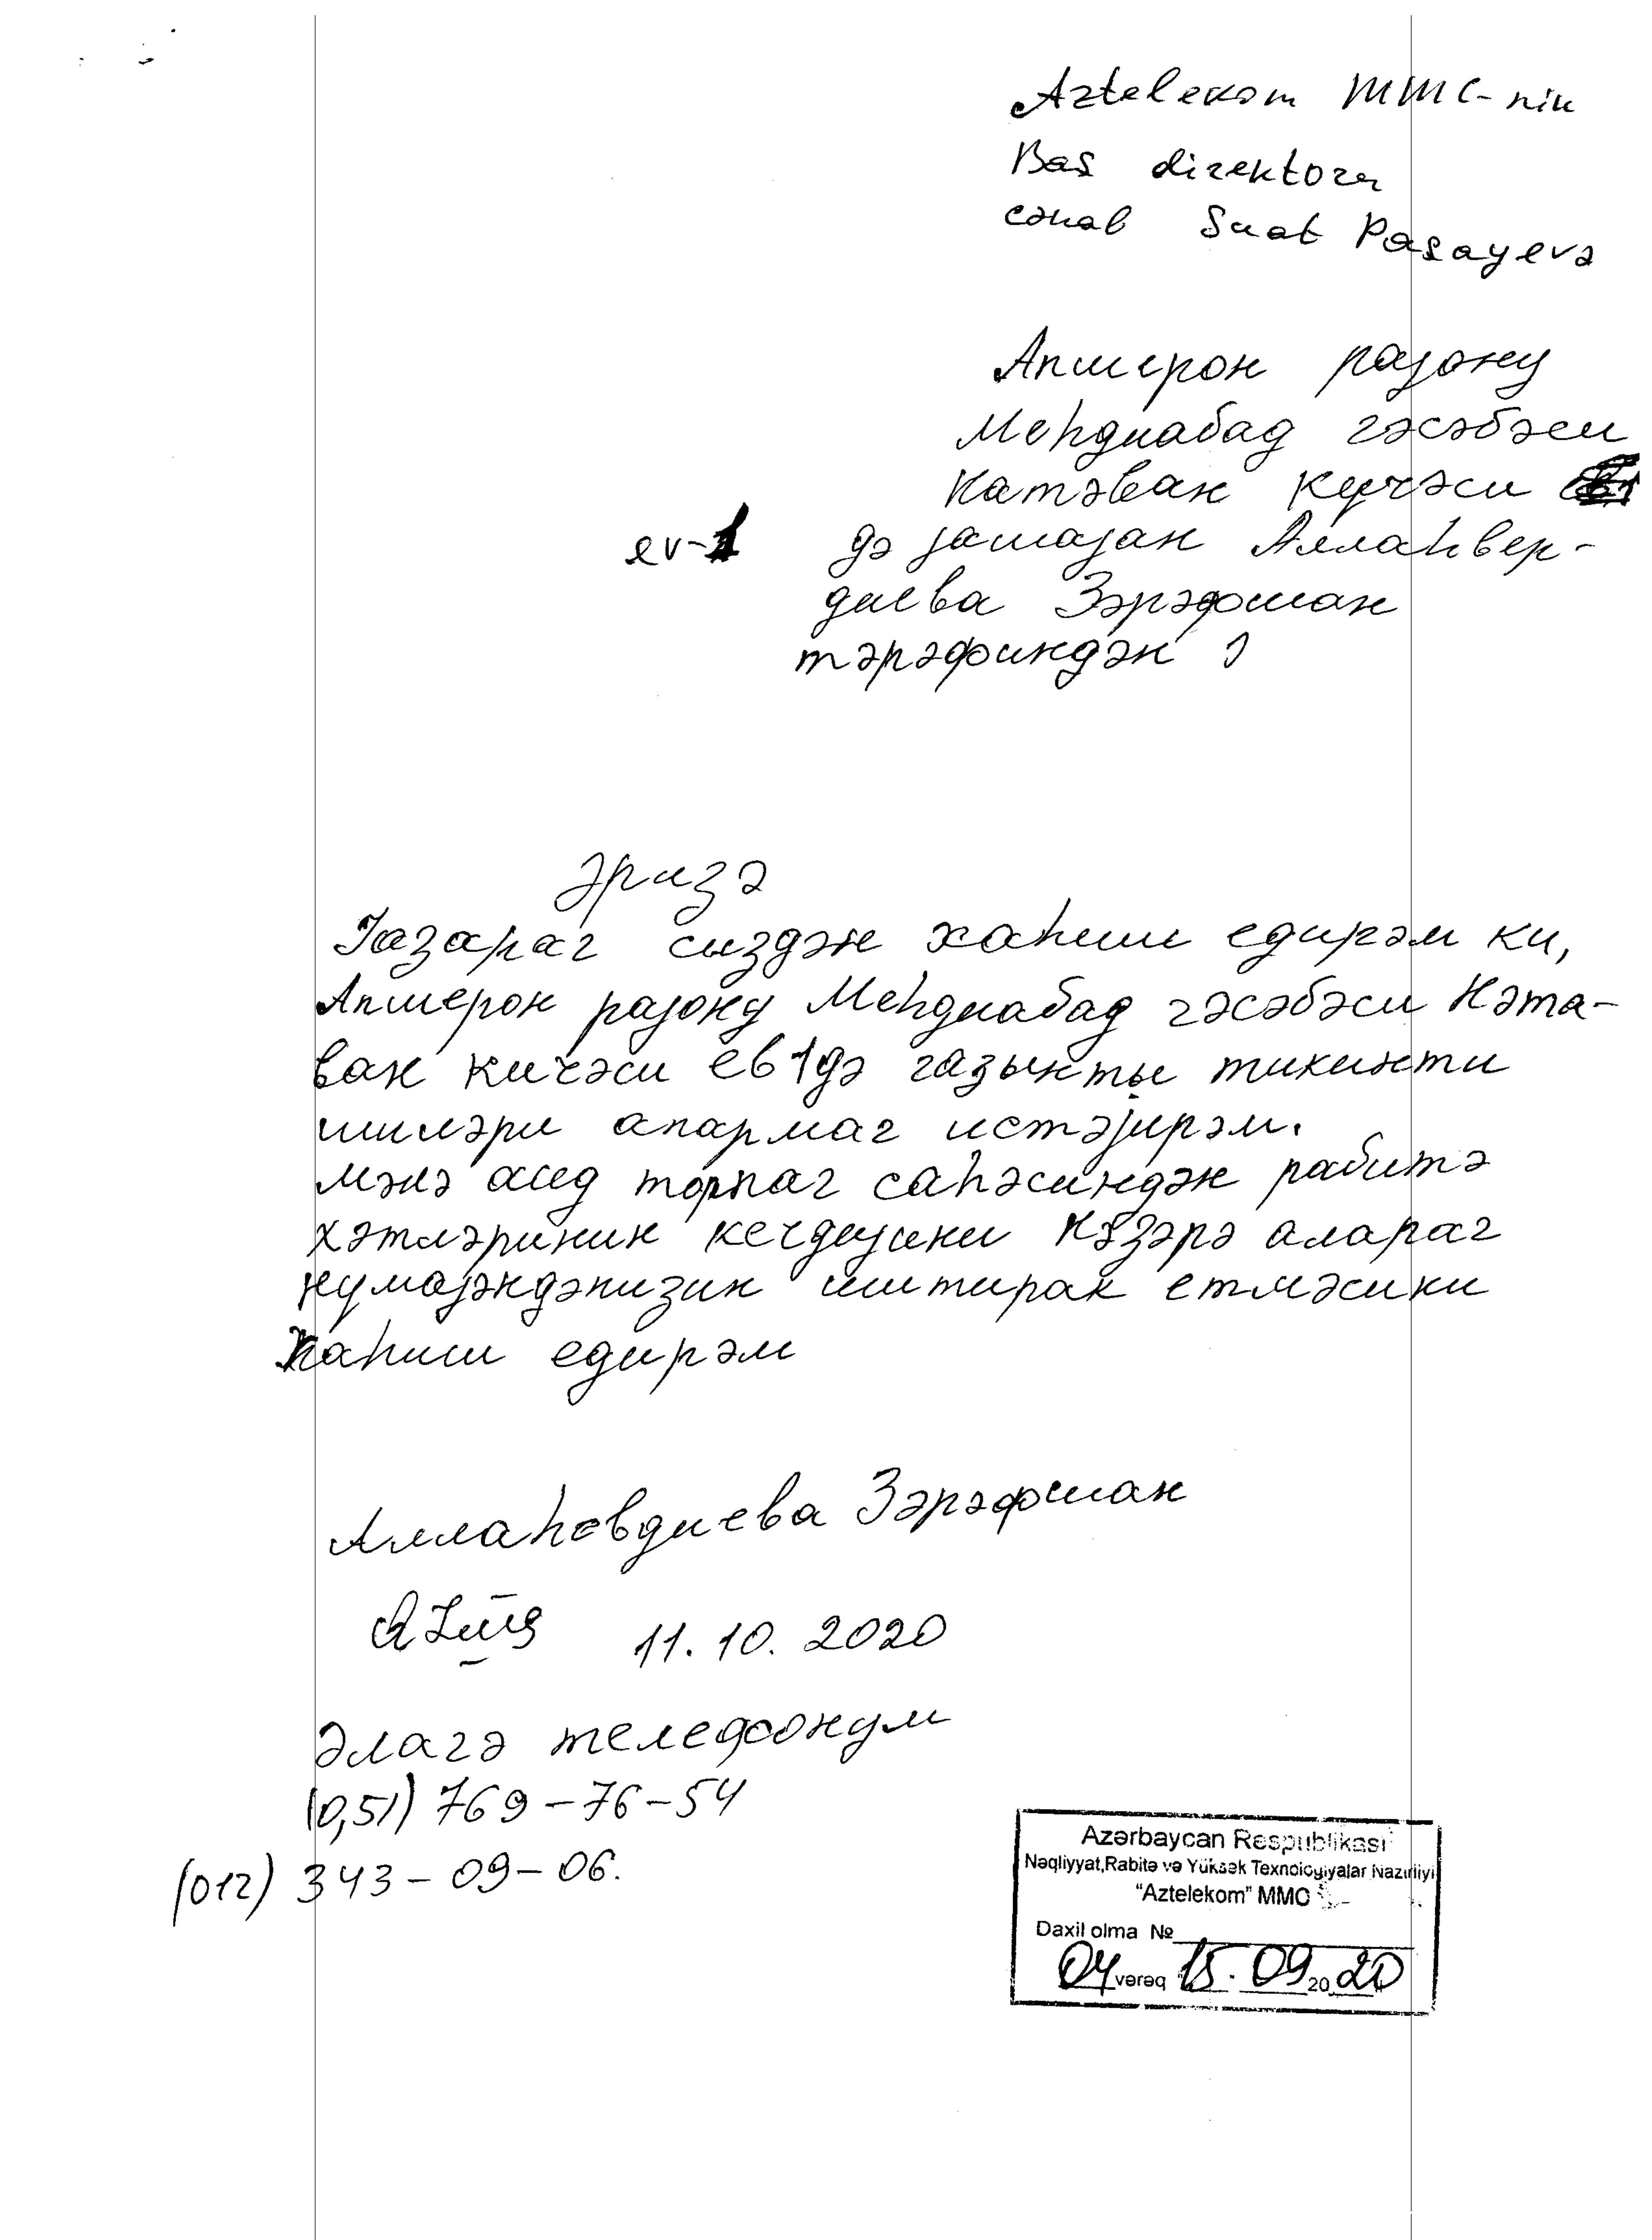 Aztelekom MMC-nin
Baş direktoru
cənab Suat Paşayevə
Апшерон рајону
Меһдиабад гәсәбәси
Натәван күчәси
ev-1 дә јашајан Аллаһвер-
диева Зәрәфшан
тәрәфиндән
Әризә
Јазараг сиздән хаһиш едирәм ки,
Апшерон рајону Меһдиабад гәсәбәси Нәта-
ван кичәси ев 1дә газынты тикинти
ишләри апармаг истәјирәм.
мәнә аид торпаг саһәсиндән рабитә
хәтләринин кечдијини нәзәрә алараг
нумајәндәнизин иштирак етмәсини
хаһиш едирәм
Аллаһевдиева Зәрәфшан
11.10.2020
Әлагә телефонум
(0,51) 769-76-54
(012) 343-09-06.
Azərbaycan Respublikası
Nəqliyyat,Rabitə və Yüksək Texnologiyalar Nazirliyi
"Aztelekom" MMC
Daxil olma №
04 vərəq 15. 09 2020